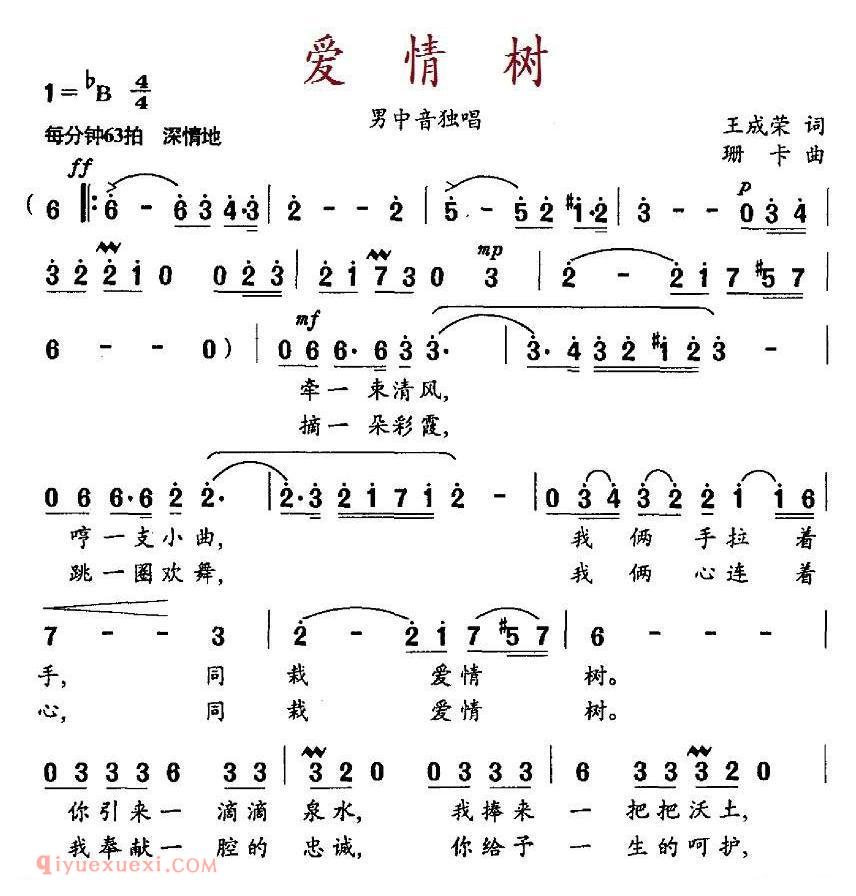 爱情树
1=♭B 4/4
男中音独唱
每分钟63拍 深情地
王成荣 词
珊卡 曲
ff
( 6 ‖: 6 - 6 3 4·3 | 2 - - 2 | 5 - 5 2 #1·2 | 3 - - 0 3 4 |
p
3 2 2 1 0 0 2 3 | 2 1 7 3 0 3 | 2 - 2 1 7 #5 7 |
mp
6 - - 0 ) | 0 6 6· 6 3 3· | 3· 4 3 2 #1 2 3 - |
mf
牵一束清风,
摘一朵彩霞,
0 6 6·6 2 2· | 2·3 2 1 7 1 2 - | 0 3 4 3 2 2 1 1 6 |
哼一支小曲, 我俩手拉着
跳一圈欢舞, 我俩心连着
7 - - 3 | 2 - 2 1 7 #5 7 | 6 - - - |
手, 同栽爱情树。
心, 同栽爱情树。
0 3 3 3 6 3 3 | 3 2 0 0 3 3 3 | 6 3 3 3 2 0 |
你引来一滴滴泉水, 我捧来一把把沃土,
我奉献一腔的忠诚, 你给予一生的呵护,
qiyuexuexi.com